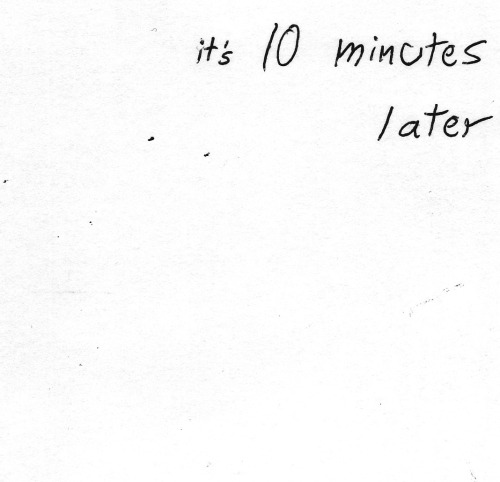 it's 10 minutes
later